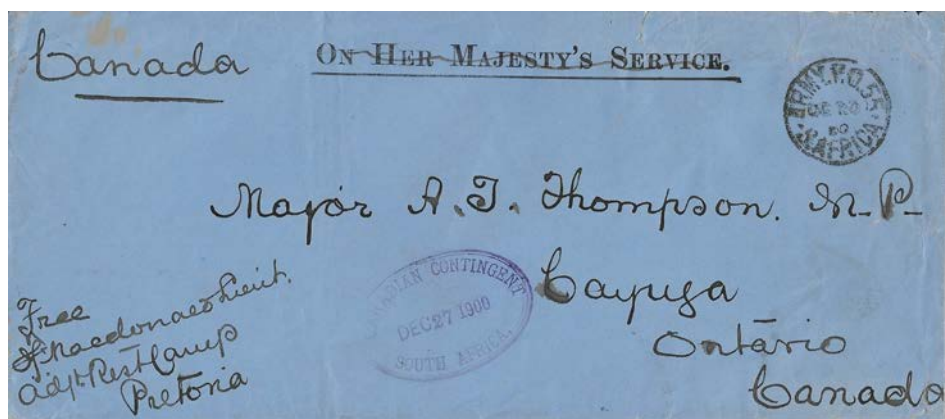 Canada
ON HER MAJESTY'S SERVICE.
ARMY.P.O.55
DE
S.AFRICA
Major A. T. Thompson. M.P.
Cayuga
Ontario
Canada
CANADIAN CONTINGENT
DEC 27 1900
SOUTH AFRICA.
Free
Macdonald Lieut.
Adjt. Rest Camp
Pretoria